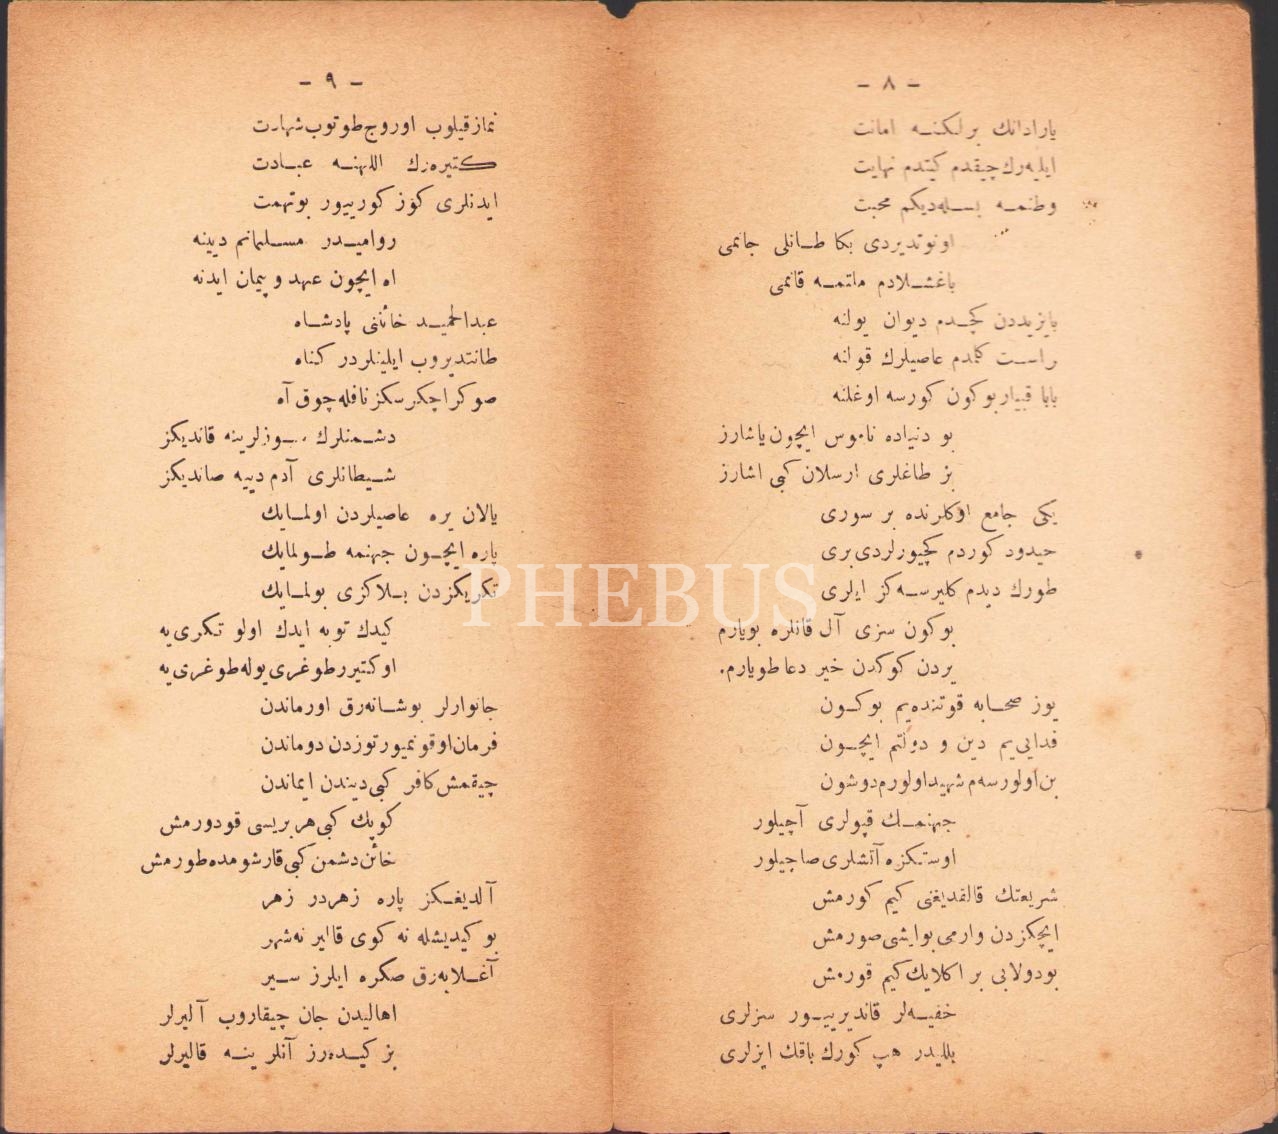 - ٨ -
يارادانك برلكنه امانت
ايليه‌رك چيقدم كيتدم نهايت
وطنمه بسله‌ديكم محبت
اونوتديردى بكا طاتلى جانمى
باغشلادم ملتمه قانمى
بايزيددن كچدم ديوان يولنه
راست كلدم عاصيلرك قولنه
بابا قييار بوكون كورسه اوغلنه
بو دنياده ناموس ايچون ياشارز
بز طاغلرى ارسلان كبى اشارز
يكى جامع اوكلرنده بر سورى
حيدود كوردم كچيورلردى برى
طورك ديدم كليرسه‌كز ايلرى
بوكون سزى آل قانلره بويارم
يردن كوكدن خير دعا طويارم.
يوز صحابه قوتنده‌يم بوكون
فدايى‌يم دين و دولتم ايچون
بن اولورسه‌م شهيد اولورم دوشون
جهنمك قپولرى آچيلور
اوستكزه آتشلرى صاچيلور
شريعتك قالقديغنى كيم كورمش
ايچكزدن وارمى بو ايشى صورمش
بو دولابى بر اكلايك كيم قورمش
خفيه‌لر قانديرييور سزلرى
بلليدر هپ كورك باقك ايزلرى
- ٩ -
نماز قيلوب اوروج طوتوب شهادت
كتيره‌رك اللهنه عبادت
ايدنلرى كوز كورييور بو تهمت
رواميدر مسلمانم دينه
اه ايچون عهد و پيمان ايدنه
عبدالحميد خائننى پادشاه
طانتديروب ايلينلردر كناه
صوكرا چكرسكز نافله چوق آه
دشمنلرك سوزلرينه قانديكز
شيطانلرى آدم دييه صانديكز
يالان يره عاصيلردن اولمايك
پاره ايچون جهنمه طولمايك
تكريكزدن بلاكزى بولمايك
كيدك توبه ايدك اولو تكرى‌يه
او كتيرر طوغرى يوله طوغرى‌يه
جانوارلر بوشانه‌رق اورماندن
فرمان اوقونميور توزدن دوماندن
چيقمش كافر كبى ديندن ايماندن
كوپك كبى هر بريسى قودورمش
خائن دشمن كبى قارشومده طورمش
آلديغكز پاره زهردر زهر
بو كيديشله نه كوى قالير نه شهر
آغلايه‌رق صكره ايلرز سير
اهاليدن جان چيقاروب آليرلر
بز كيده‌رز آنلر ينه قاليرلر
PHEBUS